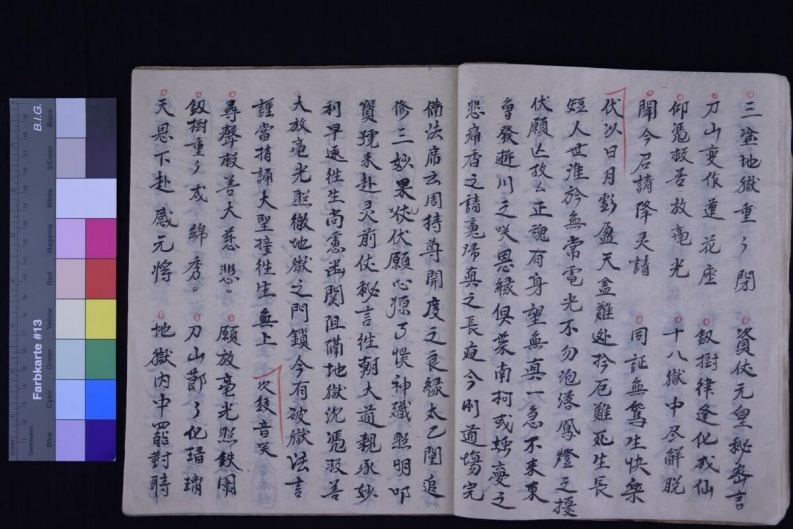 三塗地獄重々開 資伏元皇秘密言
刀山変作蓮花座 釰樹律逢化成仙
仰憑救苦放毫光 十八獄中尽解脱
聞今召請降灵請 同証無為生快樂
伏以日月虧盈天孟難処於厄難死生長
短人世淮於無常電光不勿泡落風燈之擾
伏願亡故ム正魂有身望無真一急不来東
曾發逝川之咲恩縁俱棄南柯或蝶夢之
悲痛杳之請蒐歸真之長夜今則道場完
俻法席云周持尊開度之良緣太乙聖追
修三妙果伏願心源了悞神職照明叩
寶號来赴灵前伏秘言往朝大道親承妙
利早遂往生尚慮幽関阻滞地獄沈憑救苦
大放毫光照徹地獄之門鎖今有破獄法言
謹當持誦大聖接往生無上 次鈸音咲
尋聲救苦大慈悲 願放毫光照鉄圍
釰樹重々成綿秀 刀山節々化瑨瑣
天恩下赴感元悞 地獄内中罷對時
B.I.G.
Farbkarte #13
Centimetres
Blue
Cyan
Green
Yellow
Red
Magenta
White
3/Color
Black